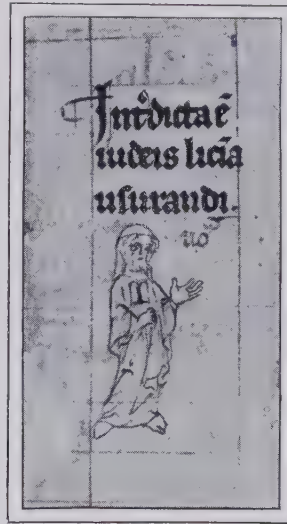 Int͛dicta ē
iudeis licīa
uſurandi.